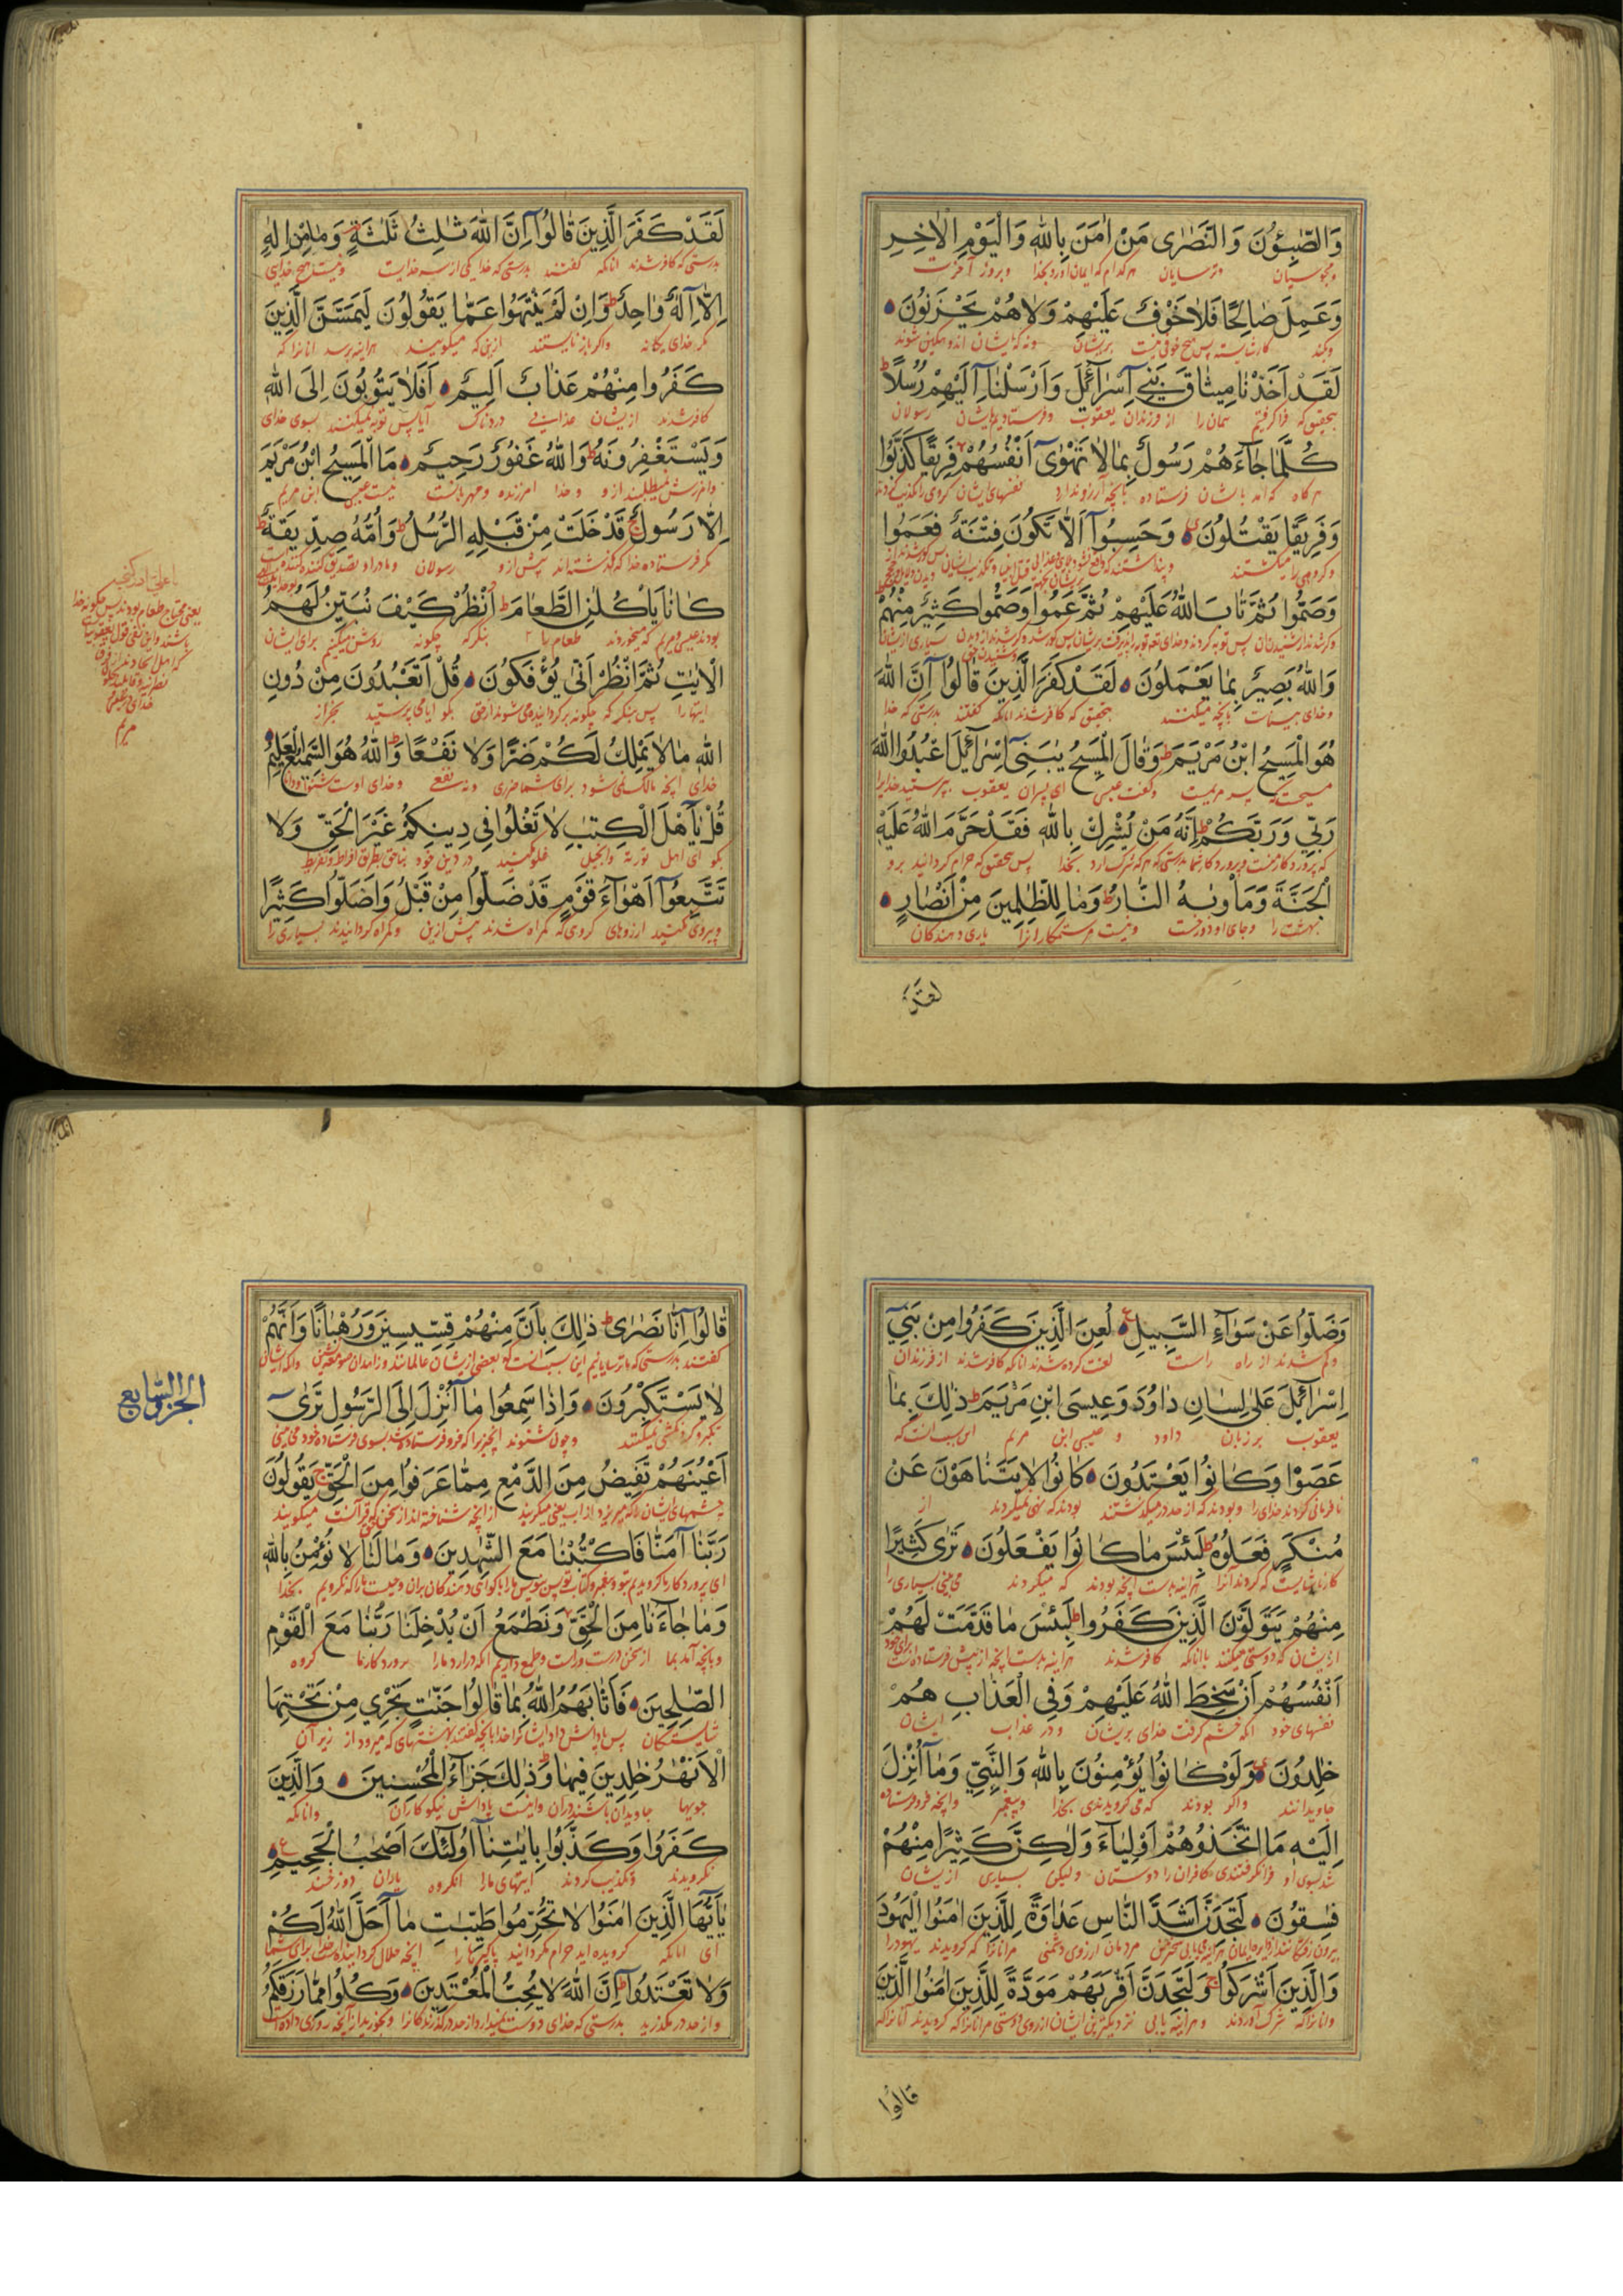 وَالصّٰبِـُٔونَ وَالنَّصٰرٰى مَنْ اٰمَنَ بِاللّٰهِ وَالْيَوْمِ الْاٰخِرِ
ومجوسیان وترسایان هر کدام که ایمان اورد بخدا وبروز آخرت
وَعَمِلَ صٰالِحًا فَلٰا خَوْفٌ عَلَيْهِمْ وَلٰا هُمْ يَحْزَنُونَ
وبکند کار شایسته پس هیچ خوفی نیست بریشان ونه که ایشان اندوهکین شوند
لَقَدْ اَخَذْنٰا مِيثٰاقَ بَنِي اِسْرٰٓائِلَ وَاَرْسَلْنٰٓا اِلَيْهِمْ رُسُلًا
بتحقیق که فرا کرفتیم پیمان را از فرزندان یعقوب وفرستادیم بایشان رسولان
كُلَّمٰا جٰٓاءَهُمْ رَسُولٌ بِمٰا لٰا تَهْوٰىٓ اَنْفُسُهُمْ فَرِيقًا كَذَّبُوا
هر کاه که امد بایشان فرستاده بانچه آرزو ندارد نفسهای ایشان کروهی را تکذیب کردند
وَفَرِيقًا يَقْتُلُونَ وَحَسِبُوٓا اَلّٰا تَكُونَ فِتْنَةٌ فَعَمُوا
وکروهی را میکشتند وپنداشتند که
وَصَمُّوا ثُمَّ تٰابَ اللّٰهُ عَلَيْهِمْ ثُمَّ عَمُوا وَصَمُّوا كَثِيرٌ مِنْهُمْ
وَاللّٰهُ بَصِيرٌ بِمٰا يَعْمَلُونَ لَقَدْ كَفَرَ الَّذِينَ قٰالُوٓا اِنَّ اللّٰهَ
وخدای بیناست بانچه میکنند بتحقیق که کافر شدند انانکه کفتند بدرستی که خدا
هُوَ الْمَسِيحُ ابْنُ مَرْيَمَ وَقٰالَ الْمَسِيحُ يٰبَنِىٓ اِسْرٰٓائِلَ اعْبُدُوا اللّٰهَ
مسیحست که پسر مریمست وکفت عیسی ای پسران یعقوب بپرستید خدایرا
رَبِّي وَرَبَّكُمْ اِنَّهُ مَنْ يُشْرِكْ بِاللّٰهِ فَقَدْ حَرَّمَ اللّٰهُ عَلَيْهِ
که پروردکار منست وپروردکار شما بدرستی که هر که شرک ارد بخدا پس بتحقیق که حرام کردانید برو
الْجَنَّةَ وَمَأْوٰىهُ النّٰارُ وَمٰا لِلظّٰلِمِينَ مِنْ اَنْصٰارٍ
بهشت را وجای او دوزخست ونیست مر ستمکارانرا یاری دهندکان
لقد
لَقَدْ كَفَرَ الَّذِينَ قٰالُوٓا اِنَّ اللّٰهَ ثٰلِثُ ثَلٰثَةٍ وَمٰا مِنْ اِلٰهٍ
بدرستی که کافر شدند انانکه کفتند بدرستی که خدا یکی از سه خداست ونیست هیچ خدای
اِلّٰٓا اِلٰهٌ وٰاحِدٌ وَاِنْ لَمْ يَنْتَهُوا عَمّٰا يَقُولُونَ لَيَمَسَّنَّ الَّذِينَ
مکر خدای یکانه واکر باز نایستند ازینکه میکویند هراینه برسد انانرا که
كَفَرُوا مِنْهُمْ عَذٰابٌ اَلِيمٌ اَفَلٰا يَتُوبُونَ اِلَى اللّٰهِ
کافر شدند ازیشان عذابی دردناک آیا پس توبه نمیکنند بسوی خدای
وَيَسْتَغْفِرُونَهُ وَاللّٰهُ غَفُورٌ رَحِيمٌ مَا الْمَسِيحُ ابْنُ مَرْيَمَ
وامرزش نمیطلبند ازو وخدا امرزنده ومهربانست نیست عیسی ابن مریم
اِلّٰا رَسُولٌ قَدْ خَلَتْ مِنْ قَبْلِهِ الرُّسُلُ وَاُمُّهُ صِدِّيقَةٌ
مکر فرستاده خدا که کذشته‌اند پیش ازو رسولان ومادر او تصدیق کننده
كٰانٰا يَأْكُلٰنِ الطَّعٰامَ اُنْظُرْ كَيْفَ نُبَيِّنُ لَهُمُ
بودند عیسی ومریم که میخوردند طعام را بنکر که چکونه روشن میکنیم برای ایشان
الْاٰيٰتِ ثُمَّ انْظُرْ اَنّٰى يُؤْفَكُونَ قُلْ اَتَعْبُدُونَ مِنْ دُونِ
ایتها را پس بنکر که چکونه برکردانیده می شوند از حق بکو ایا می پرستید بجز از
اللّٰهِ مٰا لٰا يَمْلِكُ لَكُمْ ضَرًّا وَلٰا نَفْعًا وَاللّٰهُ هُوَ السَّمِيعُ الْعَلِيمُ
خدای انچه مالک نمی شود برای شما ضرری ونه نفع وخدای اوست شنوا ودانا
قُلْ يٰٓاَهْلَ الْكِتٰبِ لٰا تَغْلُوا فِي دِينِكُمْ غَيْرَ الْحَقِّ وَلٰا
بکو ای اهل توریة وانجیل غلو مکنید در دین خود بناحق بطریق افراط وتفریط
تَتَّبِعُوٓا اَهْوٰٓاءَ قَوْمٍ قَدْ ضَلُّوا مِنْ قَبْلُ وَاَضَلُّوا كَثِيرًا
وپیروی مکنید ارزوهای کروهی که کمراه شدند پیش ازین وکمراه کردانیدند بسیاری را
یعنی محتاج طعام بودند پس چکونه خدا
باشند واین نفی قول یعقوبیا
مریم
وَضَلُّوا عَنْ سَوٰٓاءِ السَّبِيلِ لُعِنَ الَّذِينَ كَفَرُوا مِنْ بَنِيٓ
وکم شدند از راه راست لعنت کرده شدند انانکه کافر شدند از فرزندان
اِسْرٰٓائِلَ عَلٰى لِسٰانِ دٰاوُدَ وَعِيسَى ابْنِ مَرْيَمَ ذٰلِكَ بِمٰا
یعقوب بر زبان داود وعیسی ابن مریم این بسبب انست که
عَصَوْا وَكٰانُوا يَعْتَدُونَ كٰانُوا لٰا يَتَنٰاهَوْنَ عَنْ
نافرمانی کردند خدای را وبودند که از حد در میکذشتند بودند که نهی نمیکردند از
مُنْكَرٍ فَعَلُوهُ لَبِئْسَ مٰا كٰانُوا يَفْعَلُونَ تَرٰى كَثِيرًا
کار ناشایست که کردند آنرا هراینه بدست انچه بودند که میکردند می بینی بسیاری را
مِنْهُمْ يَتَوَلَّوْنَ الَّذِينَ كَفَرُوا لَبِئْسَ مٰا قَدَّمَتْ لَهُمْ
ازیشان که دوستی میکنند باانانکه کافر شدند هراینه بدست انچه از پیش فرستاده است برای خود
اَنْفُسُهُمْ اَنْ سَخِطَ اللّٰهُ عَلَيْهِمْ وَفِي الْعَذٰابِ هُمْ
نفسهای خود انکه خشم کرفت خدای بریشان ودر عذاب ایشان
خٰلِدُونَ وَلَوْ كٰانُوا يُؤْمِنُونَ بِاللّٰهِ وَالنَّبِيِّ وَمٰٓا اُنْزِلَ
جاویدانند واکر بودند که می کرویدندی بخدا وپیغمبر وانچه فرو فرستاده
اِلَيْهِ مَا اتَّخَذُوهُمْ اَوْلِيٰٓاءَ وَلٰكِنَّ كَثِيرًا مِنْهُمْ
شد بسوی او فرا نکرفتندی کافران را دوستان ولیکن بسیاری ازیشان
فٰسِقُونَ لَتَجِدَنَّ اَشَدَّ النّٰاسِ عَدٰاوَةً لِلَّذِينَ اٰمَنُوا الْيَهُودَ
وَالَّذِينَ اَشْرَكُوا وَلَتَجِدَنَّ اَقْرَبَهُمْ مَوَدَّةً لِلَّذِينَ اٰمَنُوا الَّذِينَ
وانانرا که شرک آوردند وهراینه یابی نزدیکترین ایشان از روی دوستی مر انانرا که کرویدند آنانرا که
قالوا
قٰالُوٓا اِنّٰا نَصٰرٰى ذٰلِكَ بِاَنَّ مِنْهُمْ قِسِّيسِينَ وَرُهْبٰانًا وَاَنَّهُمْ
کفتند بدرستی که ما ترسایانیم این بسبب انست که بعضی ازیشان عالمانند وزاهدان صومعه نشین وانکه ایشان
لٰا يَسْتَكْبِرُونَ وَاِذٰا سَمِعُوا مٰٓا اُنْزِلَ اِلَى الرَّسُولِ تَرٰىٓ
تکبر وکردنکشی نمیکنند وچون شنوند انچیزیرا که فرو فرستاده شد بسوی فرستاده خود می بینی
اَعْيُنَهُمْ تَفِيضُ مِنَ الدَّمْعِ مِمّٰا عَرَفُوا مِنَ الْحَقِّ يَقُولُونَ
چشمهای ایشان را که میریزد از اب یعنی میکریند از انچه شناخته اند از سخن حق که قرآنست میکویند
رَبَّنٰٓا اٰمَنّٰا فَاكْتُبْنٰا مَعَ الشّٰهِدِينَ وَمٰا لَنٰا لٰا نُؤْمِنُ بِاللّٰهِ
وَمٰا جٰٓاءَنٰا مِنَ الْحَقِّ وَنَطْمَعُ اَنْ يُدْخِلَنٰا رَبُّنٰا مَعَ الْقَوْمِ
وبانچه آمد بما از سخن درست وراست وطمع داریم انکه درارد مارا پروردکار ما با کروه
الصّٰلِحِينَ فَاَثٰابَهُمُ اللّٰهُ بِمٰا قٰالُوا جَنّٰتٍ تَجْرِي مِنْ تَحْتِهَا
شایستکان پس پاداش داد ایشانرا خدا بانچه کفتند بهشتهای که میرود از زیر آن
الْاَنْهٰرُ خٰلِدِينَ فِيهٰا وَذٰلِكَ جَزٰٓاءُ الْمُحْسِنِينَ وَالَّذِينَ
جویها جاویدان باشند دران واینست پاداش نیکوکاران وانانکه
كَفَرُوا وَكَذَّبُوا بِاٰيٰتِنٰٓا اُولٰٓئِكَ اَصْحٰبُ الْجَحِيمِ
نکرویدند وتکذیب کردند ایتهای مارا انکروه یاران دوزخند
يٰٓاَيُّهَا الَّذِينَ اٰمَنُوا لٰا تُحَرِّمُوا طَيِّبٰتِ مٰٓا اَحَلَّ اللّٰهُ لَكُمْ
ای انانکه کرویده اید حرام مکردانید پاکیزها را انچه حلال کردانیده است خدا برای شما
وَلٰا تَعْتَدُوا اِنَّ اللّٰهَ لٰا يُحِبُّ الْمُعْتَدِينَ وَكُلُوا مِمّٰا رَزَقَكُمُ
واز حد در مکذرید بدرستی که خدای دوست نمیدارد از حد در کذرندکانرا وبخورید از انچه روزی داده است
الجزو السابع